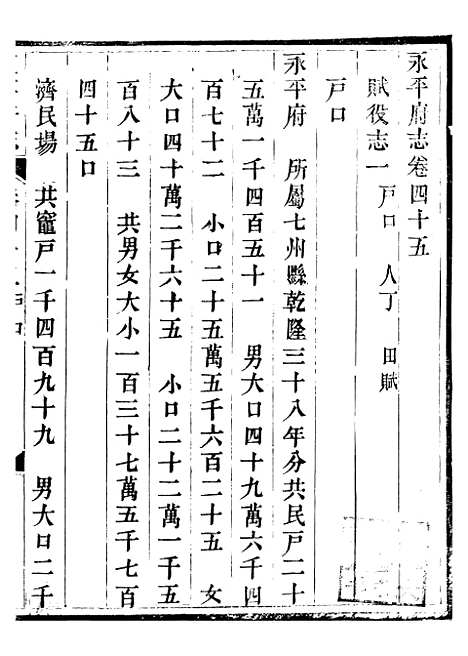 永平府志卷四十五
賦役志一 戸口 人丁 田賦
戸口
永平府 所屬七州縣乾隆三十八年分共民戸二十
五萬一千四百五十一 男大口四十九萬六千四
百七十二 小口二十五萬五千六百二十五 女
大口四十萬二千六十五 小口二十二萬一千五
百八十三 共男女大小一百三十七萬五千七百
四十五口
濟民場 共竈戸一千四百九十九 男大口二千